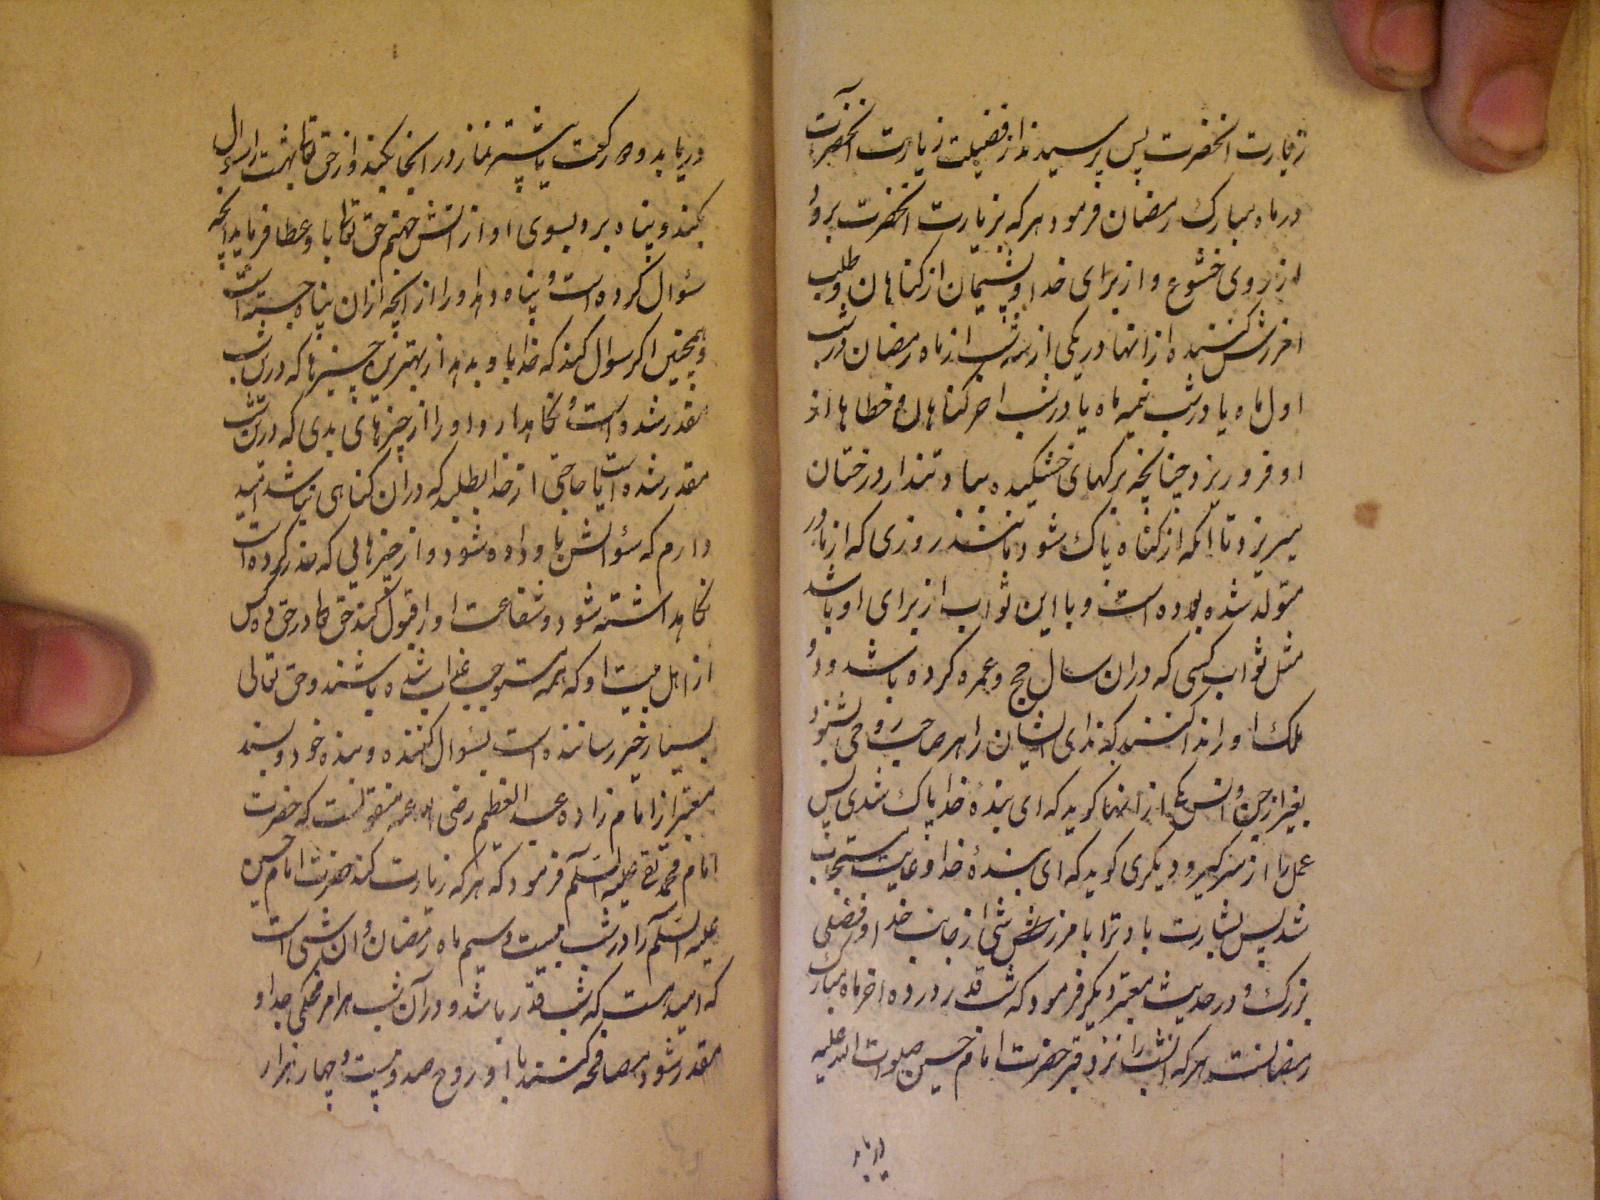 زیارت انحضرت پس پرسیدند از فضیلت زیارت آنحضرت
در ماه مبارک رمضان فرمود هر که بزیارت انحضرت برود
از روی خشوع و از برای خدا و پشیمان از کناهان و طلب
امرزش کننده از انها در یکی از سه شب از ماه رمضان در شب
اول ماه یا در شب نیمه ماه یا در شب اخر کناهان و خطاها از
او فرو ریزد چنانچه برکهای خشکیده بباد تند از درختان
میریزد تا انکه از کناه پاک شود مانند روزی که از مادر
متولد شده بوده است و با این ثواب از برای او باشد
مثل ثواب کسی که در ان سال حج و عمره کرده باشد و دو
ملک او را ندا کنند که ندای ایشان را هر صاحب روحی بشنود
بغیر از جن و انس یکی از انها کوید که ای بنده خدا پاک شدی پس
عمل را از سر کیر و دیکری کوید که ای بندهٔ خدا دعایت مستجاب
شد پس بشارت باد ترا بامرزش از جانب خدا و فضلی
بزرک و در حدیث معتبر دیکر فرمود که شب قدر در ده اخر ماه مبارک
رمضانست هر که انشب را نزد قبر حضرت امام حسین صلوات الله علیه
دریابد
دریابد و دو رکعت یا بیشتر نماز در انجا بکند و از حق تعالی بهشت را سؤال
بکند و پناه برد بسوی او از اتش جهنم حق تعالی باو عطا فرماید انچه
سؤال کرده است و پناه دهد او را از انچه از ان پناه جسته است
و همچنین اکر سوال کند که خدا باو بدهد از بهترین چیزها که در این شب
مقدر شده است و نکاهدارد او را از چیزهای بدی که در این شب
مقدر شده است یا حاجتی از خدا بطلبد که در ان کناهی نباشد امید
دارم که سؤالش باو داده شود و از چیزهایی که حذر کرده است
نکاهداشته شود و شفاعت او را قبول کند حق تعالی در حق ده کس
از اهل بیت او که همه مستوجب عذاب شده باشند و حق تعالی
بسیار خیر رساننده است بسؤال کننده و بنده خود و بسند
معتبر از امام زاده عبد العظیم رضی الله عنه منقولست که حضرت
امام محمد تقی علیه السلم فرمود که هر که زیارت کند حضرت امام حسین
علیه السلم را در شب بیست و سیم ماه رمضان و ان شبی است
که امید هست که شب قدر باشد و در آن شب هر امر محکمی جدا و
مقدر شود مصافحه کنند با او روح صد و بیست و چهار هزار